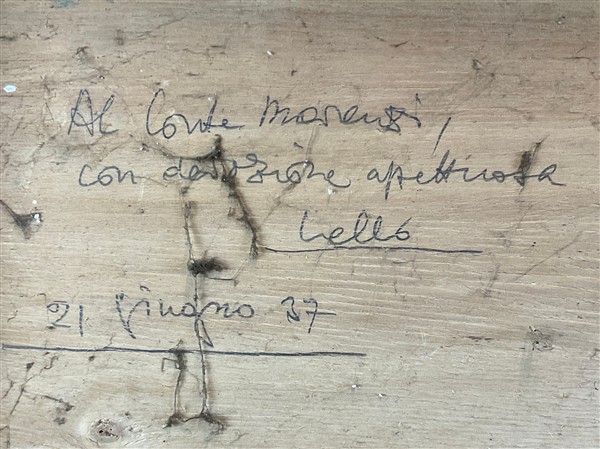 Al Conte Marenzi,
con devozione affettuosa
Lello
21 Giugno 37